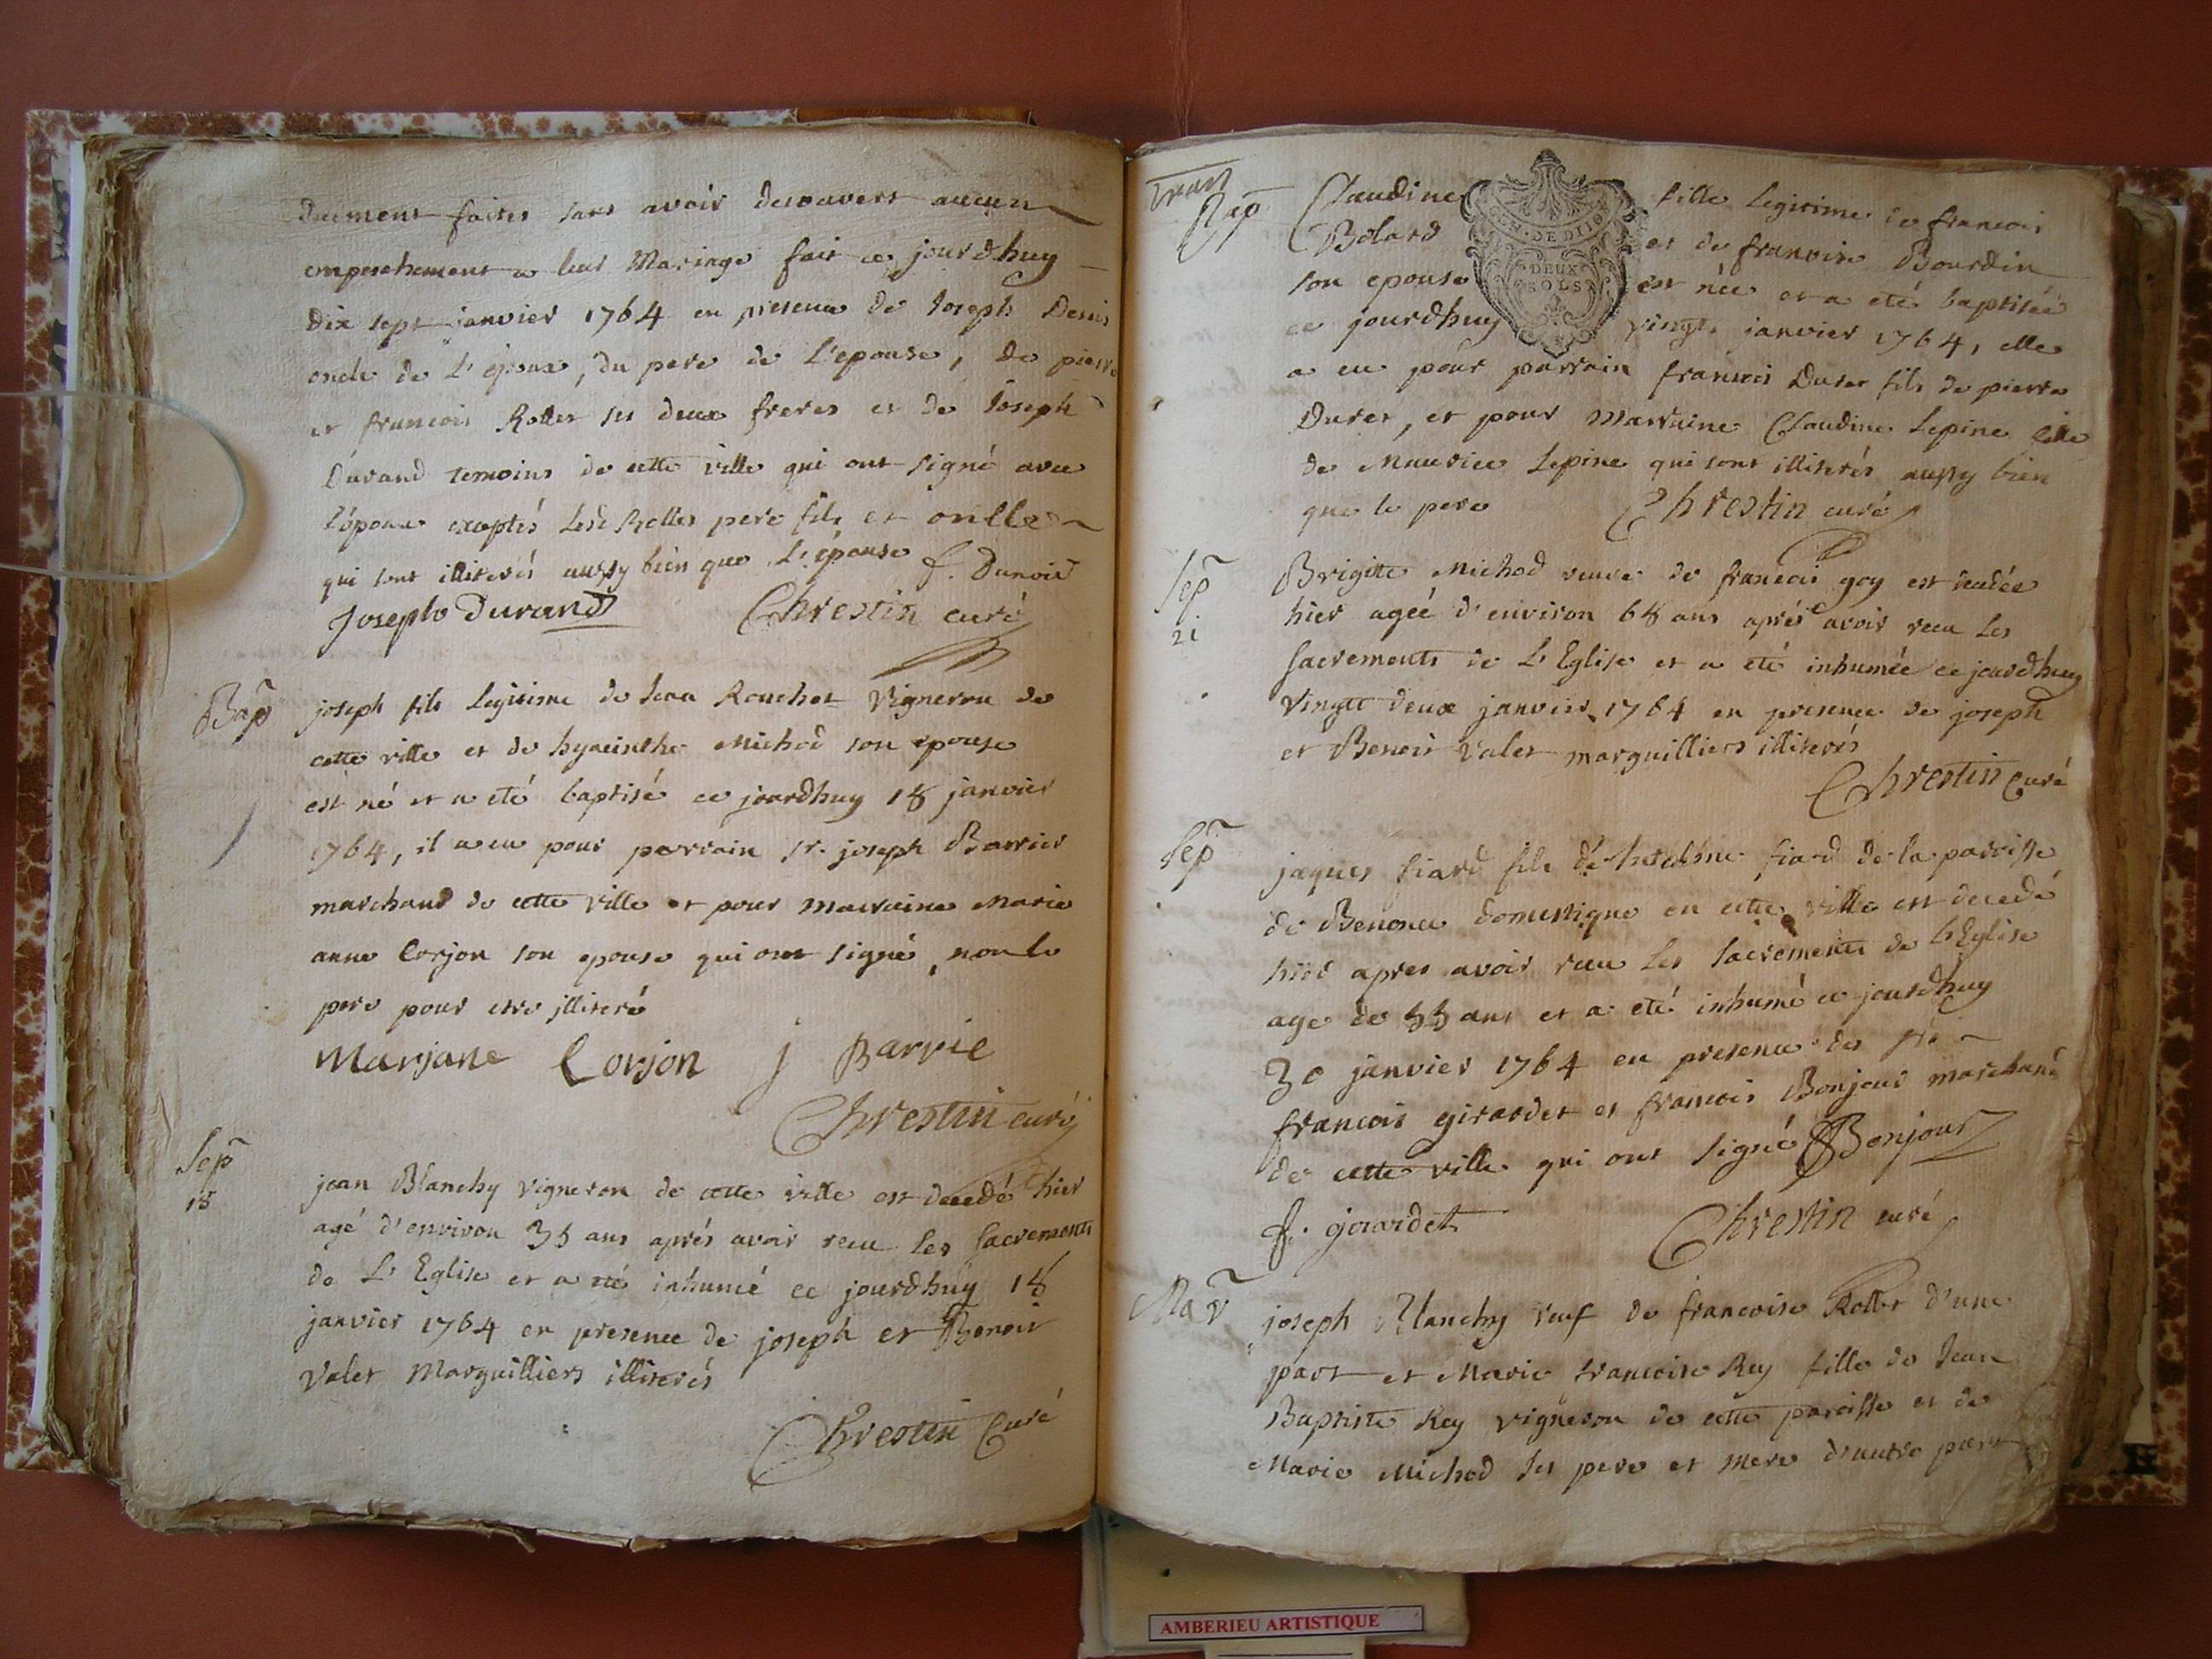 duement faites sans avoir decouvert aucun
empeschement a leur Mariage fait ce jourdhuy
dix sept janvier 1764 en presence de Joseph Denis
oncle de L'epoux, du pere de L'epouse, de pierre
et francois Rollet ses deux freres et de Joseph
Durand temoins de cette ville qui ont signé avec
l'époux exceptés Lesd Rollet pere fils et oncle
qui sont illiterés aussy bien que L'épouse f. Dunoid
Joseph Durand Chrestin curé
Bap
joseph fils Legitime de Jean Rouchet Vigneron de
cette ville et de hyacinthe Michod son epouse
est né et a eté baptisé ce jourdhuy 18 janvier
1764, il a eu pour parrain Sr. joseph Barrier
marchand de cette ville et pour marraine Marie
anne Corjon son epouse qui ont signé, non le
pere pour etre illiteré
Marjane Corjon j Barrie
Chrestin curé
Sep
18
jean Blanchy vigneron de cette ville est decedé hier
agé d'environ 35 ans aprés avoir recu les Sacrements
de L'Eglise et a eté inhumé ce jourdhuy 18
janvier 1764 en presence de joseph et Benoit
Valet Marguilliers illiterés
Chrestin Curé
Bap
Claudine fille Legitime de francois
Bolard et de francoise Bourdin
son epouse est née et a eté baptisée
ce jourdhuy vingt janvier 1764, elle
DEUX
SOLS
a eu pour parrain francois Duret fils de pierre
Duret, et pour Marraine Claudine Lepine fille
de Maurice Lepine qui sont illiterés aussy bien
que le pere Chrestin curé
Sep
21
Brigitte Michod veuve de francois goy est decedée
hier agée d'environ 68 ans aprés avoir recu Les
Sacrements de L'Eglise et a eté inhumée ce jourdhuy
Vingt deux janvier 1764 en presence de joseph
et Benoit Valet marguilliers illiterés
Chrestin Curé
Sep
jaques fiard fils de fiard de la parroisse
de Benonce domestique en cette ville est decedé
hier apres avoir recu Les Sacrements de L'Eglise
age de 55 ans et a eté inhumé ce jourdhuy
30 janvier 1764 en presence des Srs
francois girardet et francois Bonjour marchand
de cette ville qui ont signé Bonjour
f. girardet Chrestin curé
Mar
joseph Blanchy veuf de francoise Rollet d'une
part et Marie francoise Rey fille de Jean
Baptiste Rey vigneron de cette paroisse et de
Marie Michod ses pere et mere d'autre part
AMBERIEU ARTISTIQUE